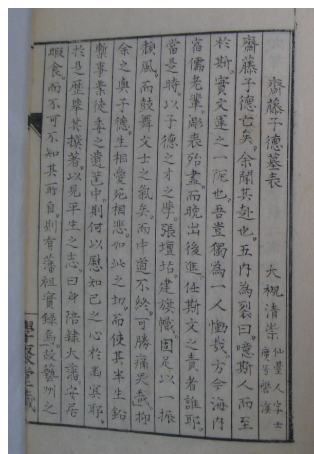 齋藤子德墓表
大槻清崇
仙臺人字士
廣号磐溪
齋藤子德亡矣余聞其赴也五內為裂曰噫斯人而至
於斯實文運之一阨也吾豈獨為一人慟哉方今海內
宿儒老輩彫喪殆盡而晩出後進任斯文之責者誰耶
當是時以子德之才之學張壇坫建旗幟固足以一振
頽風而鼓舞文士之氣矣而中道不終可勝痛哭哉抑
余之與子德生相愛死相悲如此之切而使其半生鉛
槧事業徒委之遺筐中則何以慰知己之心於幽冥耶
於是歷舉其撰著以見平生之志曰身陪隸大藩安居
暇食而不可不知其所自則有藩祖實錄焉故藝州之